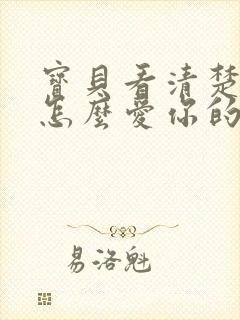 寶貝看清楚
怎麼愛你的
易洛魁